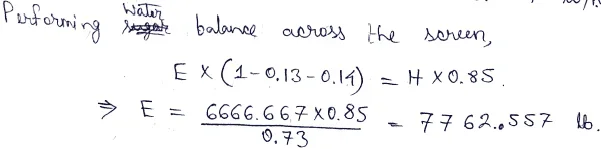 Performing water balance across the screen,
E × (1-0.13-0.14) = H × 0.85.
⇒ E = 6666.667×0.85 / 0.73 = 7762.557 lb.